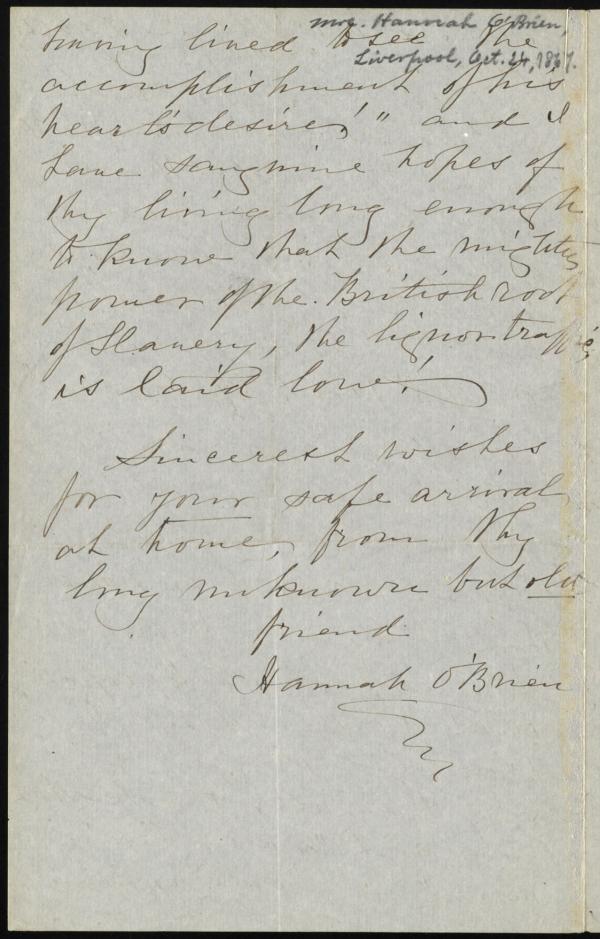 Mrs. Hannah O'Brien,
Liverpool, Oct. 24, 1867.
having lived to see the
accomplishment of his
heart's desire!" and I
have sanguine hopes of
thy living long enough
to know that the mighty
power of the British root
of Slavery, the liquor traffic,
is laid low!
Sincerest wishes
for your safe arrival
at home, from thy
long unknown but old
friend
Hannah O'Brien